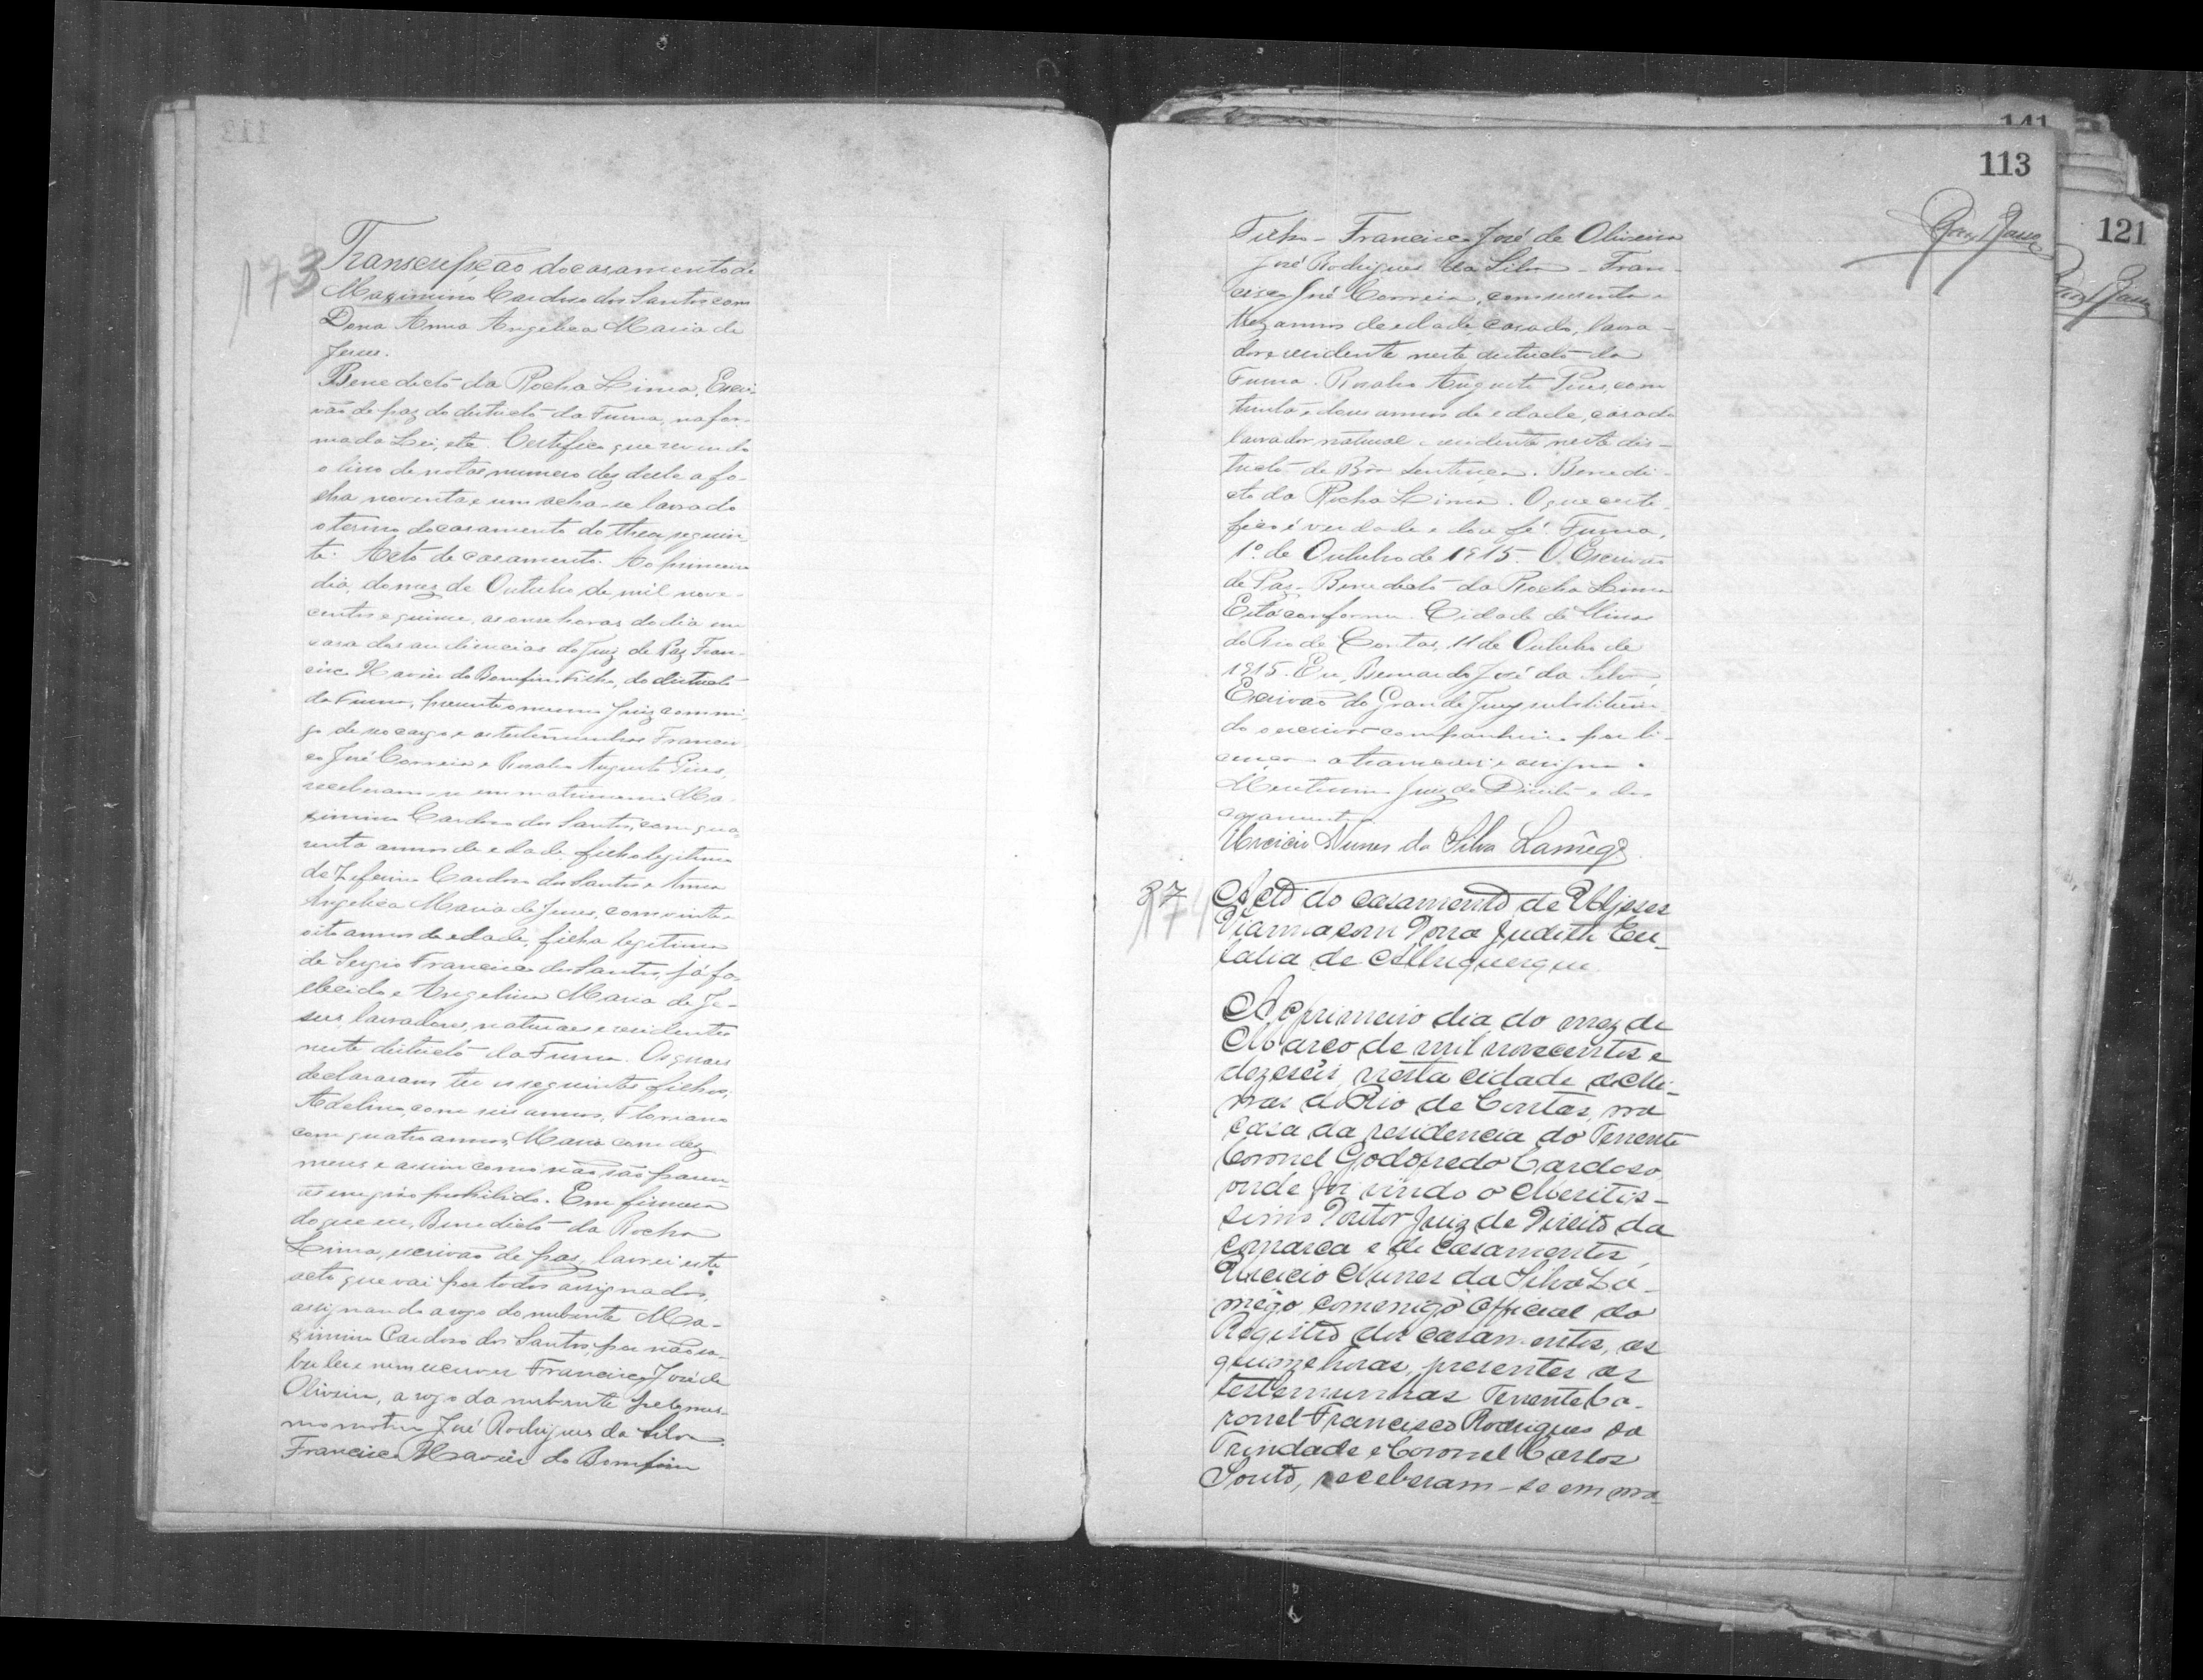 173
Transcripção do casamento de
Maximino Cardoso dos Santos com
Dona Anna Angelica Maria de
Jesus.
Benedicto da Rocha Lima, Escri-
vão de paz do districto da Furna, na for-
ma da Lei, etc. Certifico que revendo
o livro de notas numero dez delle a fo-
lha noventa e um acha-se lavrado
o termo do casamento do theor seguin-
te: Acto de casamento. Ao primeiro
dia, do mez de Outubro de mil nove-
centos e quinze, as onze horas do dia em
casa das audiencias do Juiz de Paz Fran-
cisco Xavier do Bomfim Filho, do districto
da Furna, presente o mesmo Juiz commi-
go de seo cargo e as testemunhas Francis-
co José Correia e Rosalvo Augusto Pires,
receberam-se em matrimonio Ma-
ximino Cardoso dos Santos, com qua-
renta annos de edade, filho legitimo
de Zeferino Cardoso dos Santos e Anna
Angelica Maria de Jesus, com vinte e
oito annos de edade, filha legitima
de Sergio Francisco dos Santos, já fa-
llecido e Angelina Maria de Je-
sus, lavradores, naturaes e residentes
neste districto da Furna. Os quaes
declararam ter os seguintes filhos:
Adelino, com seis annos, Floriano
com quatro annos, Maria com dez
mezes e assim como não são paren-
tes em gráo prohibido. Em firmesa
do que eu, Benedicto da Rocha
Lima, escrivão de paz, lavrei este
acto que vai por todos assignados,
assignando a rogo do nubente Ma-
ximino Cardoso dos Santos, por não sa-
ber ler e nem escrever Francisco José de
Oliveira, a rogo da nubente pelo mes-
mo motivo José Rodrigues da Silva.
Francisco Xavier do Bomfim
113
Filho - Francisco José de Oliveira
José Rodrigues da Silva - Fran-
cisco José Correia, com sessenta e
trez annos de edade, casado, lavra-
dor e residente neste districto da
Furna. Rosalvo Augusto Pires, com
trinta e dous annos de edade, casado
lavrador, natural e residente neste dis-
tricto de Bôa Sentença. Benedi-
cto da Rocha Lima. O que certi-
fico é verdade e dou fé. Furna,
1º de Outubro de 1915. O Escrivão
de Paz - Benedicto da Rocha Lima
Está conforme. Cidade de Minas
do Rio de Contas, 11 de Outubro de
1915. Eu, Bernardo José da Silva,
Escrivão do Grande Jury substituin-
do o escrivão companheiro por li-
cença a transcrevi e assigno.
Meritissimo Juiz de Direito e dos
casamentos
Urcicio Nunes da Silva Lamêgo.
37
174
Acto do casamento de Ulysses
Vianna com Dona Judith Eu-
lalia de Albuquerque.
Ao primeiro dia do mez de
Março de mil novecentos e
dezeseis, nesta cidade de Mi-
nas do Rio de Contas, na
casa da residencia do Tenente
Coronel Godofredo Cardoso,
onde foi vindo o Meritis-
simo Doutor Juiz de Direito da
comarca e de casamentos,
Urcicio Nunes da Silva La-
mêgo, commigo Official do
Registro dos casamentos, as
quinze horas, presentes as
testemunhas Tenente Co-
ronel Francisco Rodrigues da
Trindade e Coronel Carlos
Souto, receberam-se em ma-
141
121